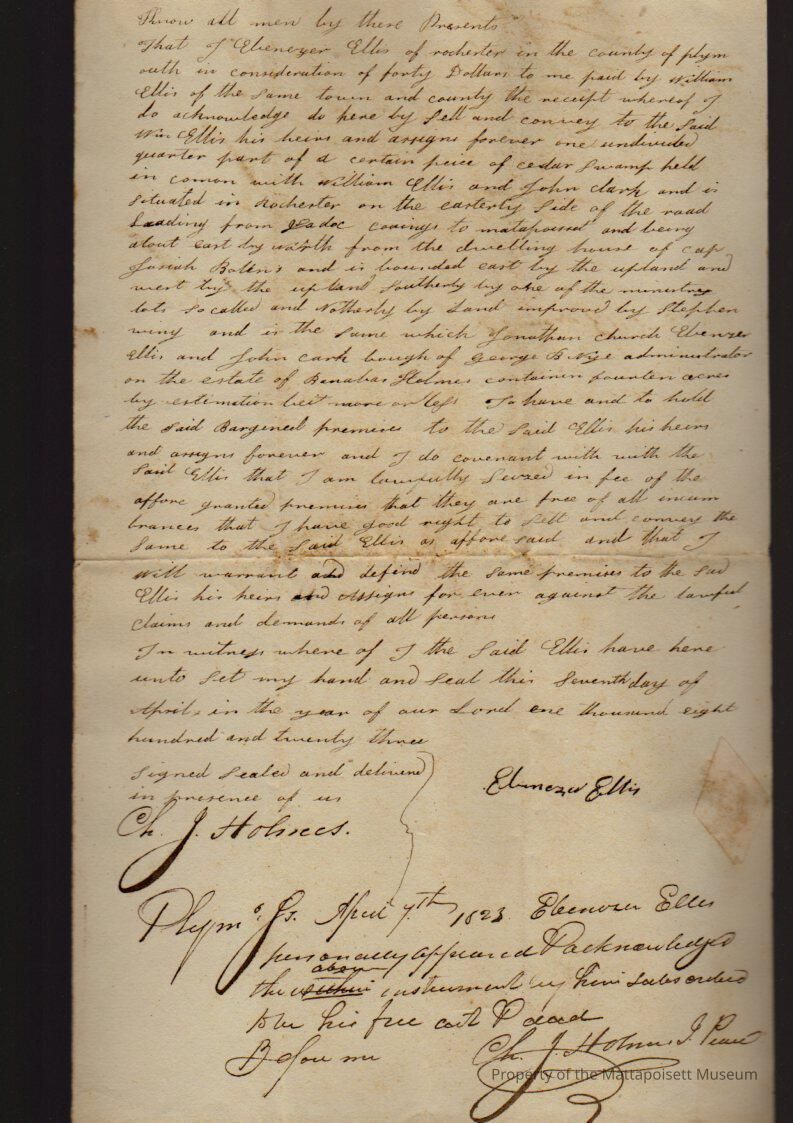 Know all men by these Presents
that I Ebenezer Ellis of rochester in the county of plym
outh in consideration of forty Dollars to me paid by William
Ellis of the Same town and county the receipt whereof I
do acknowledge do here by Sell and convey to the Said
Wm Ellis his heirs and assigns forever one undivided
quarter part of a certain peice of cedar Swamp held
in comon with William Ellis and John clark and is
Situated in Rochester on the easterly Side of the road
Leading from to matapoisett and being
about east by north from the dwelling house of cap
Josiah and is bounded east by the upland and
west by the upland Southerly by one of the ministrey
lots So called and Notherly by Land improved by Stephen
wing and is the Same which Jonathan church Ebenezer
Ellis and John cark bough of George B Nye administrator
on the estate of Banabas Holmes containin fourten acres
by estemation beit more or less To have and to hold
the Said Bargined premises to the Said Ellis his heirs
and assigns forever and I do covenant with with the
Said Ellis that I am lawfully Seized in fee of the
affore granted premises that they are free of all incum
brances that I have good right to Sell and convey the
Same to the Said Ellis as affore said and that I
will warrant and defend the Same premises to the Said
Ellis his heirs and Assigns for ever against the lawful
claims and demands of all persons
In witness where of I the Said Ellis have here
unto Set my hand and Seal this Seventh day of
April in the year of our Lord one thousand eight
hundred and twenty three
Signed Sealed and delivered
in presence of us
Ebenezer Ellis
Ch. J. Holmes.
Plymo Ss. April 7th 1823. Ebenezer Ellis
personally appeared & acknowledged
above
the within instrument by him subscribed
to be his free act & deed
Before me
Ch. J. Holmes J. Peace
Property of the Mattapoisett Museum